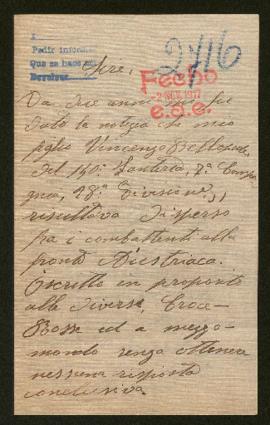 Pedir inform
Que se hace
Devolver
2416
Sire,
Fecho
2 NOV. 1917
Da due anni mi fu
dato la notizia che mio
figlio Vincenzo
del 140° Fanteria, 2ª Compa
gnia, 28ª Divisione,
risultava disperso
fra i combattenti alla
fronte Austriaca.
Scritto in proposito
alle diverse Croce
Rosse ed a mezzo
mondo senza ottenere
nessuna risposta
conclusiva.